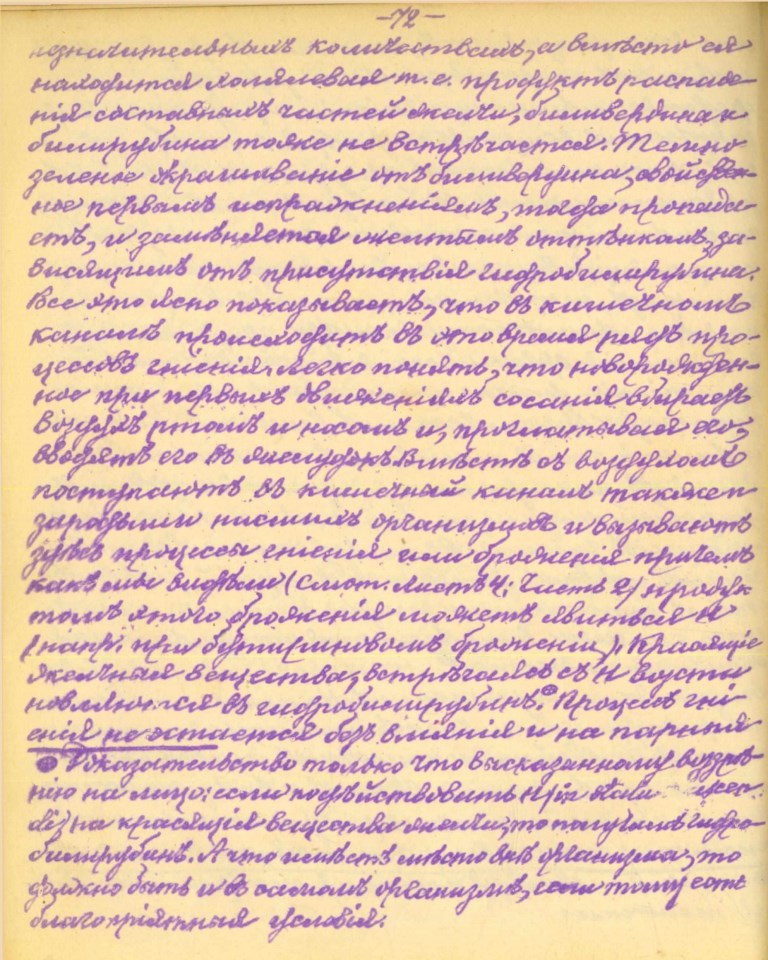 –72–
незначительныхъ количествахъ, а вмѣсто ея
находится холялевая т.е. продуктъ распаде-
нія составныхъ частей желчи; биливердина и
билирубина тоже не встрѣчается. Темно
зеленое окрашиваніе отъ биливердина, свойствен-
ное первымъ испражненіямъ, тогда пропада-
етъ, и замѣняется желтымъ оттѣнкомъ, за-
висящимъ отъ присутствія гидробилирубина.
Все это ясно показываетъ, что въ кишечномъ
каналѣ происходитъ въ это время рядъ про-
цессовъ гніенія. Легко понять, что новорожден-
ное при первыхъ движеніяхъ сосанія вбираетъ
воздухъ ртомъ и носомъ и, проглатывая его,
вводятъ его въ желудокъ. Вмѣстѣ съ воздухомъ
поступаютъ въ кишечный каналъ также и
зародыши низшихъ организмовъ и вызываютъ
здѣсь процессы гніенія или броженія причемъ
какъ мы видѣли (смот. Листъ 4; Часть 2) продук
томъ этого броженія можетъ явиться H
(напр. при бутириновомъ броженіи). Красящіе
желчныя вещества, встрѣчаясь съ H возста
новляются въ гидробилирубинъ.⊕ Процессъ гні
енія не остается безъ вліянія и на парныя
⊕ Доказательство только что высказанному воззрѣ-
нію на лицо: если подѣйствовать H (in statu nascen
di) на красящія вещества желчи, то получимъ гидро
билирубинъ. А что имѣетъ мѣсто внѣ организма, то
должно быть и въ самомъ организмѣ, если тому есть
благопріятныя условія.